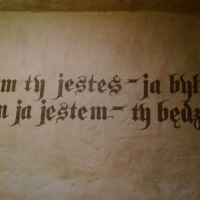 m ty jesteś - ja był
m ja jestem - ty będz